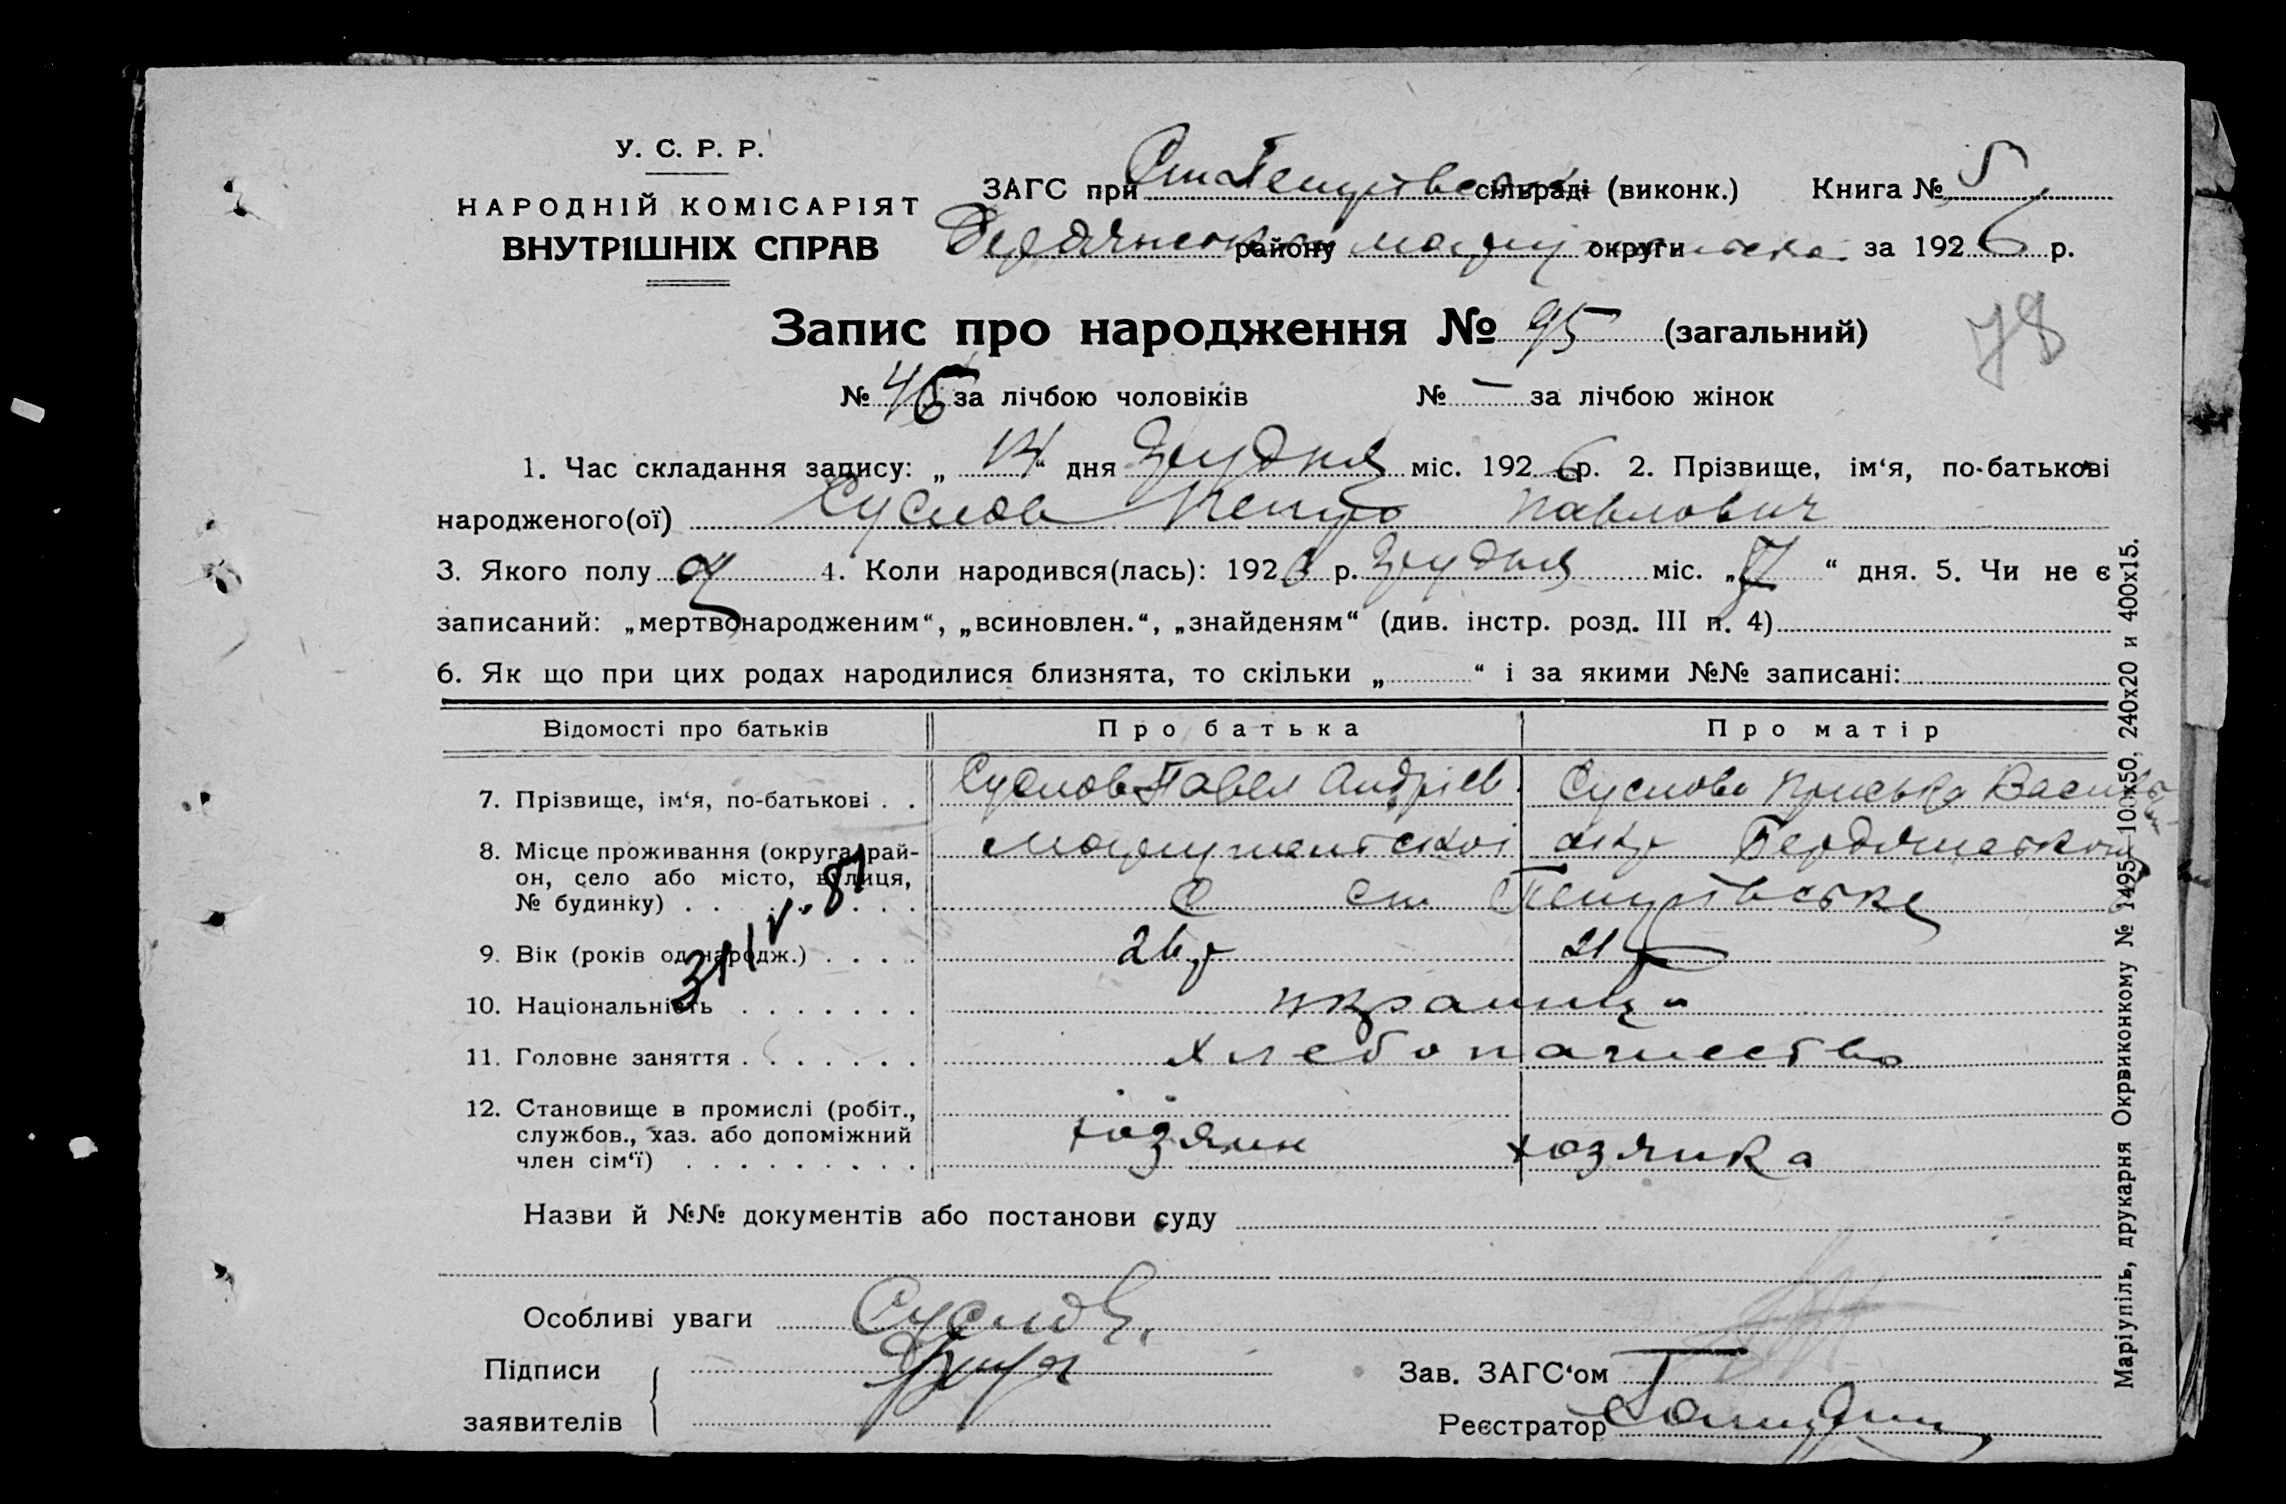 У. С. Р. Р.
НАРОДНІЙ КОМІСАРІЯТ
ВНУТРІШНІХ СПРАВ
ЗАГС при Ст Петрівском сільраді (виконк.) Книга № 5
Бердянського району Маріупольська округи за 1926 р.
Запис про народження № 95 (загальний)
78
№ 45 за лічбою чоловіків № – за лічбою жінок
1. Час складання запису: „ 14 “ дня Грудня міс. 1926 р. 2. Прізвище, ім‘я, по-батькові
народженого(ої) Суслов Петро Павлович
3. Якого полу ч 4. Коли народився(лась): 1926 р. Грудня міс. „ 7 “ дня. 5. Чи не є
записаний: „мертвонародженим“, „всиновлен.“, „знайденям“ (див. інстр. розд. III п. 4)
6. Як що при цих родах народилися близнята, то скільки „ “ і за якими №№ записані:
Відомості про батьків Про батька Про матір
7. Прізвище, ім‘я, по-батькові . . Суслов Павел Андріев. Суслова Приська
8. Місце проживання (округа, рай- окр Бердянського
он, село або місто, вулиця,
№ будинку) . . . . . . . . . С Ст Петрівське
9. Вік (років од народж.) . . . . 26 р 21 р
10. Національність . . . . . . . украинц
11. Головне заняття . . . . . . . хлебопашество
12. Становище в промислі (робіт.,
службов., хаз. або допоміжний хозяин хозяика
член сім‘ї) . . . . . . . . .
Назви й №№ документів або постанови суду
Особливі уваги Суслов.
Підписи
заявителів
Зав. ЗАГС‘ом
Реєстратор
Маріупіль, друкарня Окрвиконкому № 1495—100х50, 240х20 и 400х15.